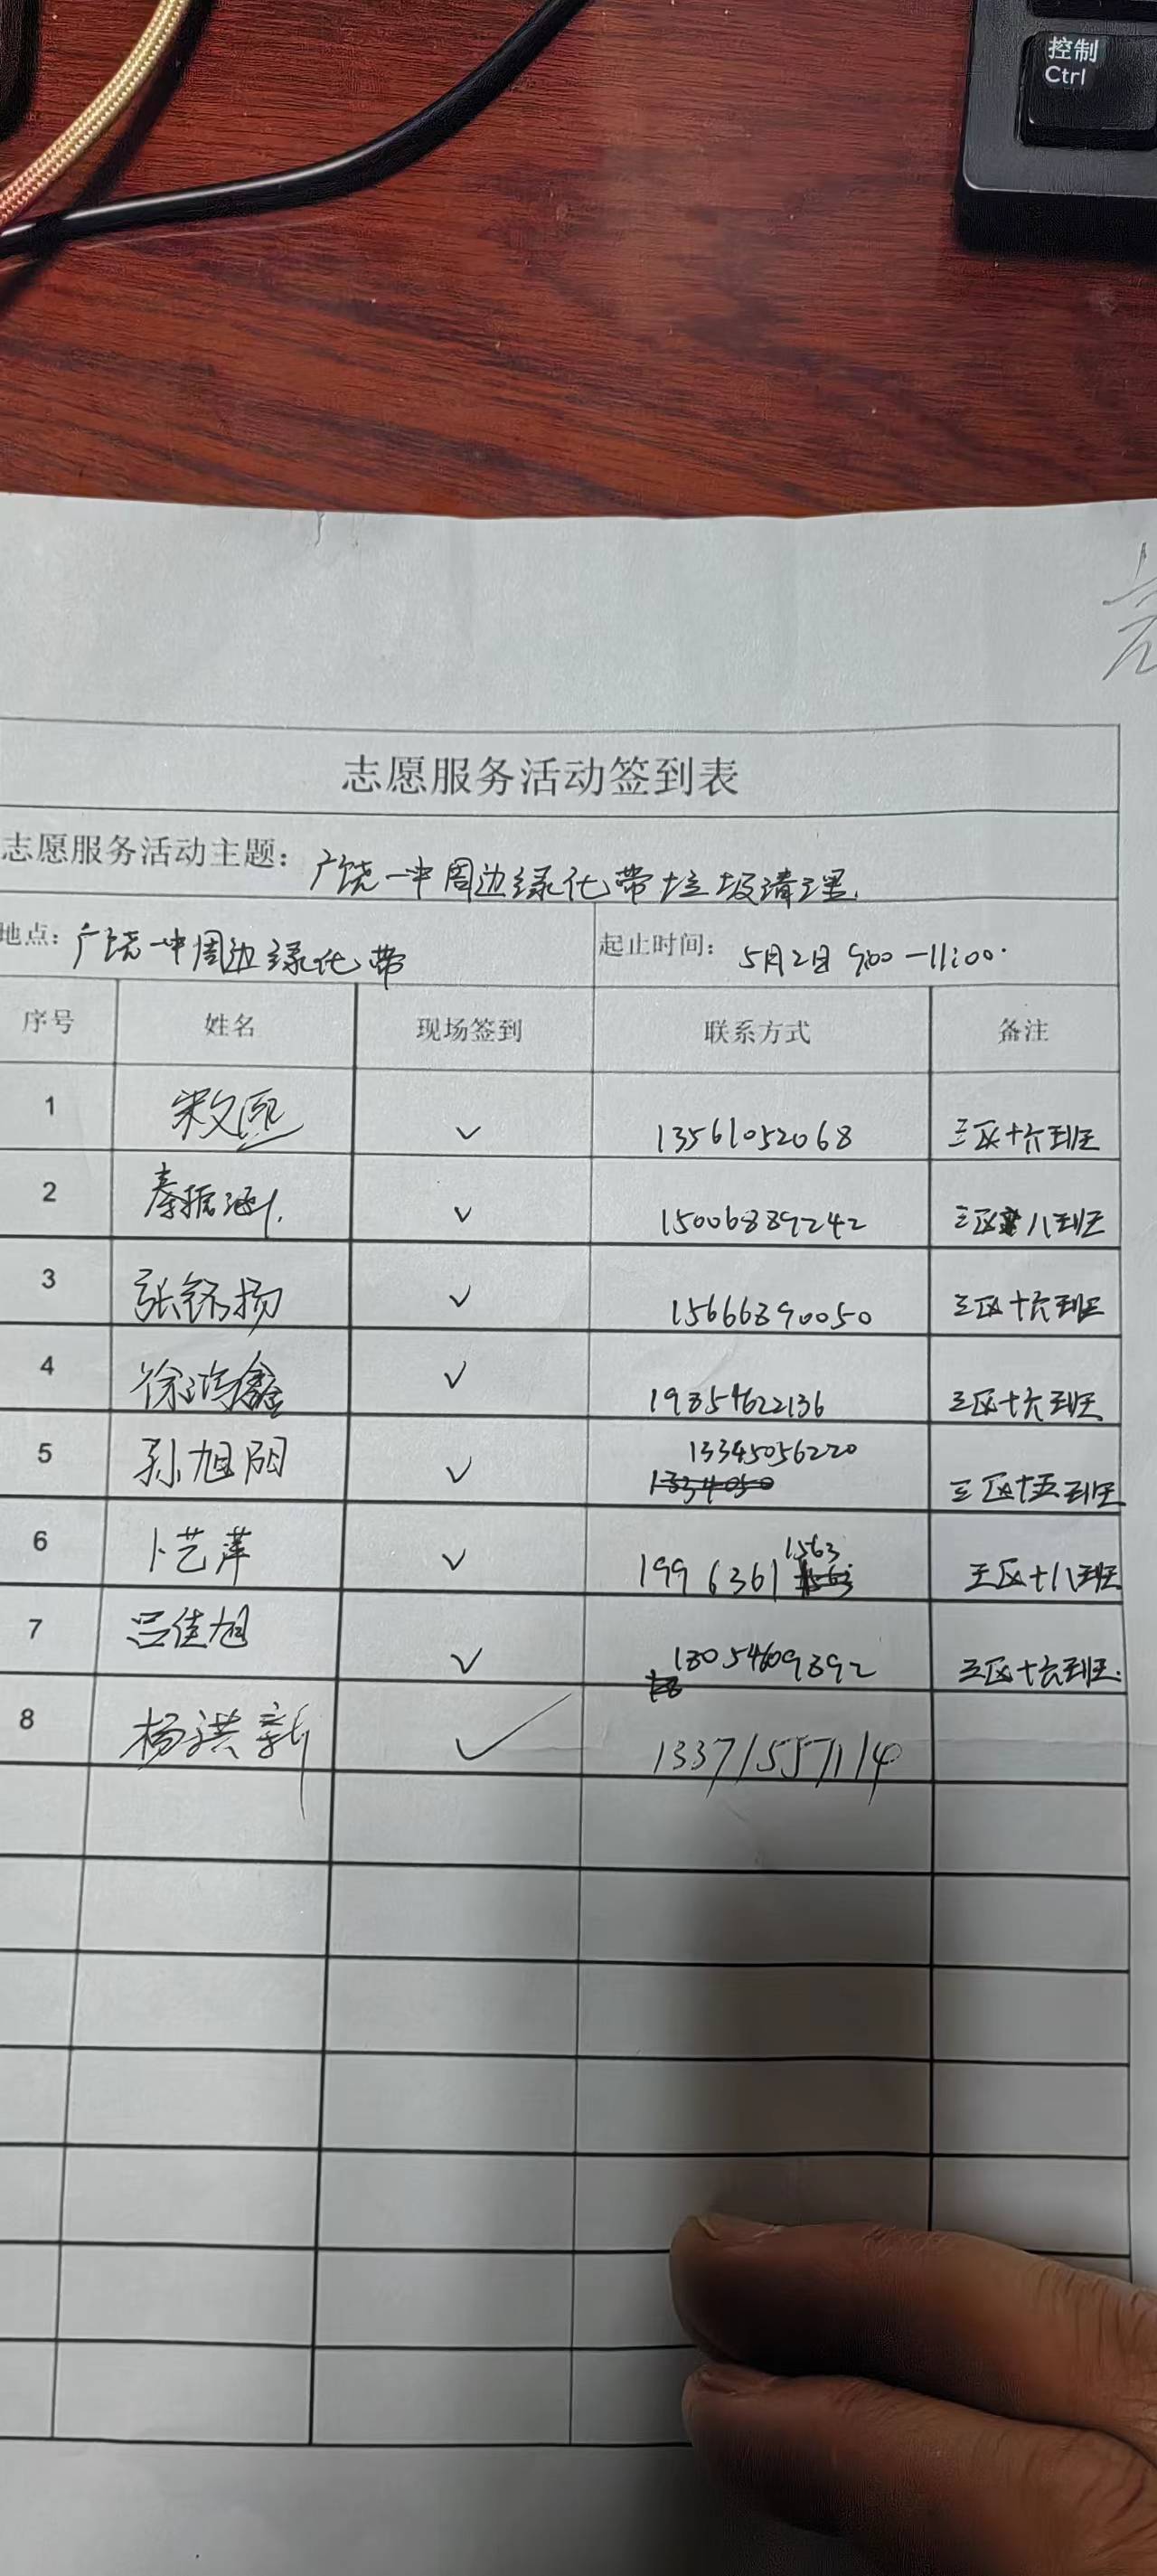 控制
Ctrl
志愿服务活动签到表
志愿服务活动主题: 广饶一中周边绿化带垃圾清理.
地点: 广饶一中周边绿化带 起止时间: 5月2日 9:00-11:00.
序号 姓名 现场签到 联系方式 备注
1 宋文熙 ✓ 13561052068 三区十六班
2 秦振涵 ✓ 15006889242 三区八班
3 张铭扬 ✓ 15666890050 三区十六班
4 徐鸿鑫 ✓ 19854622136 三区十六班
5 孙旭阳 ✓ 13345056220 三区十五班
6 卜艺萍 ✓ 19963611563 三区十八班
7 吕佳旭 ✓ 18054609892 三区十六班.
8 杨洪新 ✓ 13371557114